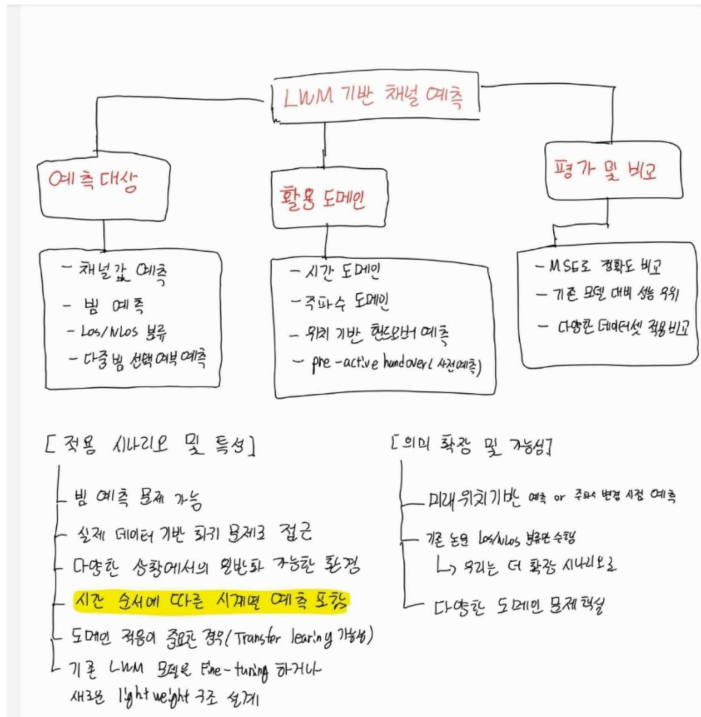 LWM 기반 채널 예측
예측 대상
활용 도메인
평가 및 비교
- 채널값 예측
- 빔 예측
- Los/NLos 분류
- 다중빔 선택여부 예측
- 시간 도메인
- 주파수 도메인
- 위치 기반 핸드오버 예측
- pre-active handover (사전예측)
- MSE로 정확도 비교
- 기존 모델 대비 성능 우위
- 다양한 데이터셋 적용 비교
[적용 시나리오 및 특성]
빔 예측 문제 가능
실제 데이터 기반 회귀 문제로 접근
다양한 상황에서의 일반화 가능한 환경
시간 순서에 따른 시계열 예측 포함
도메인 적응이 중요한 경우(Transfer learing 가능성)
기존 LWM 모델을 Fine-tuning 하거나
새로운 lightweight 구조 설계
[의미 확장 및 가능성]
미래 위치기반 예측 or 주파수 변경 시점 예측
기존 논문 Los/NLos 분류만 수행
↳ 우리는 더 확장 시나리오로
다양한 도메인 문제